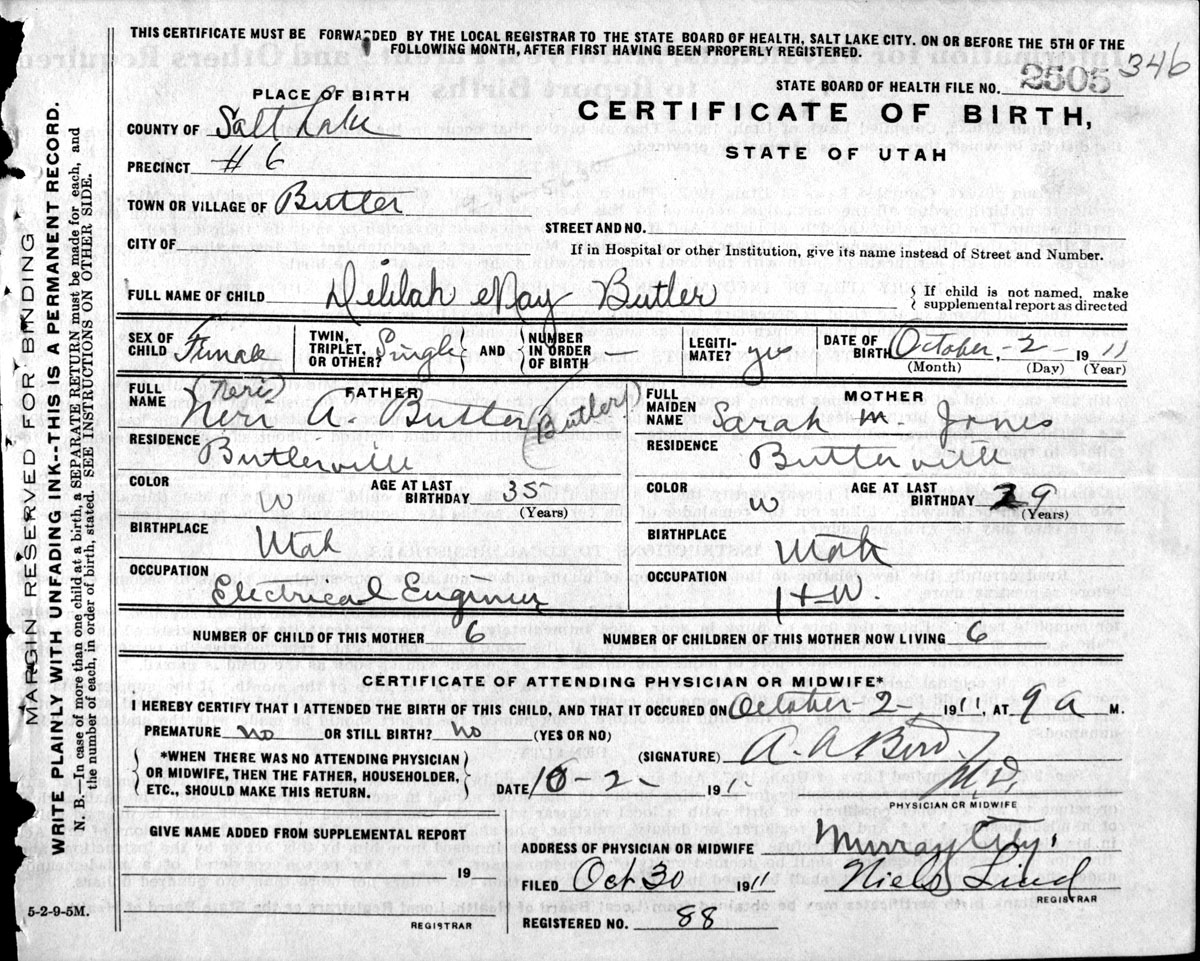 THIS CERTIFICATE MUST BE FORWARDED BY THE LOCAL REGISTRAR TO THE STATE BOARD OF HEALTH, SALT LAKE CITY, ON OR BEFORE THE 5TH OF THE
FOLLOWING MONTH, AFTER FIRST HAVING BEEN PROPERLY REGISTERED.
STATE BOARD OF HEALTH FILE NO. 2505 346
PLACE OF BIRTH
CERTIFICATE OF BIRTH,
STATE OF UTAH
COUNTY OF Salt Lake
PRECINCT #6
TOWN OR VILLAGE OF Butler
STREET AND NO.
CITY OF
If in Hospital or other Institution, give its name instead of Street and Number.
FULL NAME OF CHILD Delilah May Butler
{ If child is not named, make
supplemental report as directed
SEX OF CHILD Female
TWIN, TRIPLET, OR OTHER? Single AND NUMBER IN ORDER OF BIRTH
LEGITIMATE? yes
DATE OF BIRTH October - 2 - 1911
(Month) (Day) (Year)
FATHER
FULL NAME (Neri) Neri A. Butler (Butler)
RESIDENCE Butlerville
COLOR W
AGE AT LAST BIRTHDAY 35 (Years)
BIRTHPLACE Utah
OCCUPATION Electrical Engineer
MOTHER
FULL MAIDEN NAME Sarah M. Jones
RESIDENCE Butlerville
COLOR W
AGE AT LAST BIRTHDAY 29 (Years)
BIRTHPLACE Utah
OCCUPATION H-W.
NUMBER OF CHILD OF THIS MOTHER 6
NUMBER OF CHILDREN OF THIS MOTHER NOW LIVING 6
CERTIFICATE OF ATTENDING PHYSICIAN OR MIDWIFE*
I HEREBY CERTIFY THAT I ATTENDED THE BIRTH OF THIS CHILD, AND THAT IT OCCURED ON October - 2 - 1911, AT 9 a M.
PREMATURE no OR STILL BIRTH? no (YES OR NO)
*WHEN THERE WAS NO ATTENDING PHYSICIAN
OR MIDWIFE, THEN THE FATHER, HOUSEHOLDER,
ETC., SHOULD MAKE THIS RETURN.
(SIGNATURE) M.D.
DATE 10-2 191
PHYSICIAN OR MIDWIFE
GIVE NAME ADDED FROM SUPPLEMENTAL REPORT
19
REGISTRAR
ADDRESS OF PHYSICIAN OR MIDWIFE Murray City.
FILED Oct 30 1911 Niels Lind
REGISTRAR
REGISTERED NO. 88
5-2-9-5M.
MARGIN RESERVED FOR BINDING
WRITE PLAINLY WITH UNFADING INK--THIS IS A PERMANENT RECORD.
N. B.—In case of more than one child at a birth, a SEPARATE RETURN must be made for each, and
the number of each, in order of birth, stated. SEE INSTRUCTIONS ON OTHER SIDE.